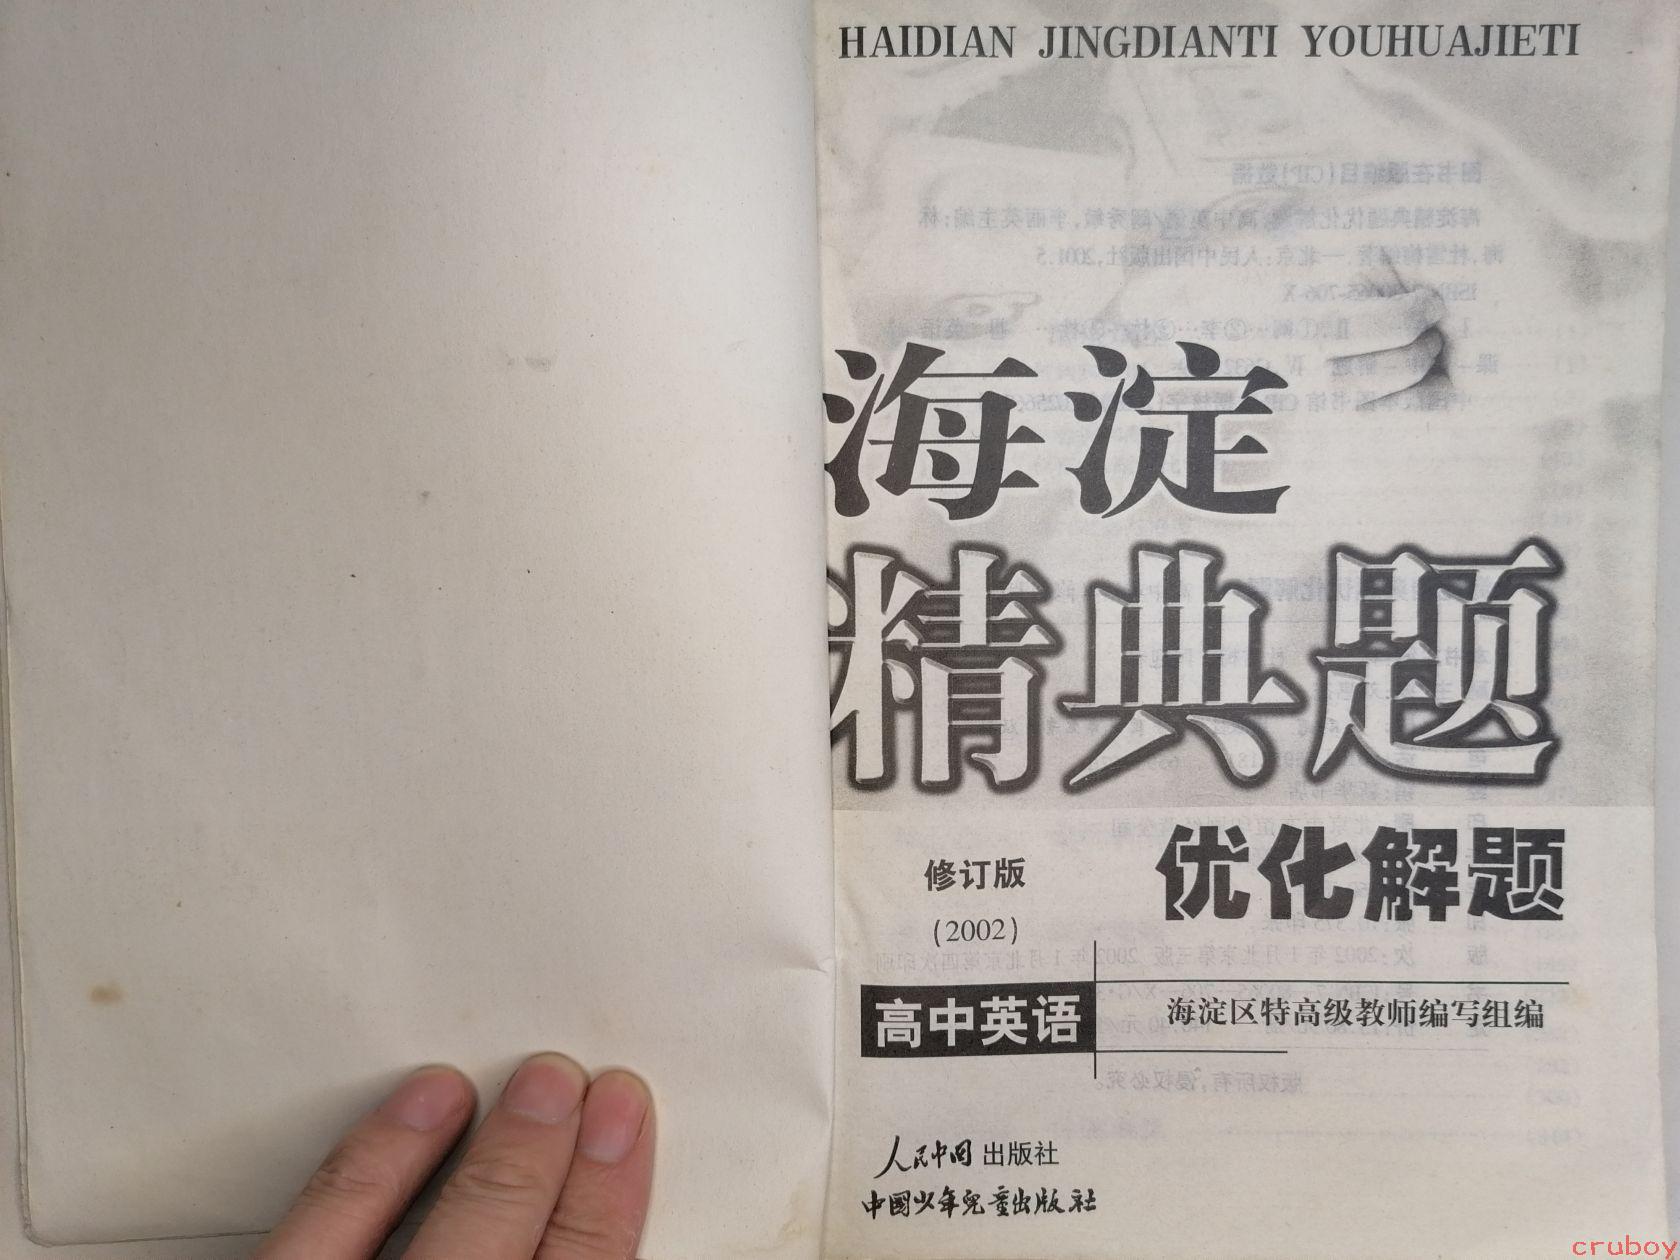 HAIDIAN JINGDIANTI YOUHUAJIETI
海淀
精典题
优化解题
修订版
(2002)
高中英语
海淀区特高级教师编写组编
人民中国出版社
中国少年儿童出版社
cruboy